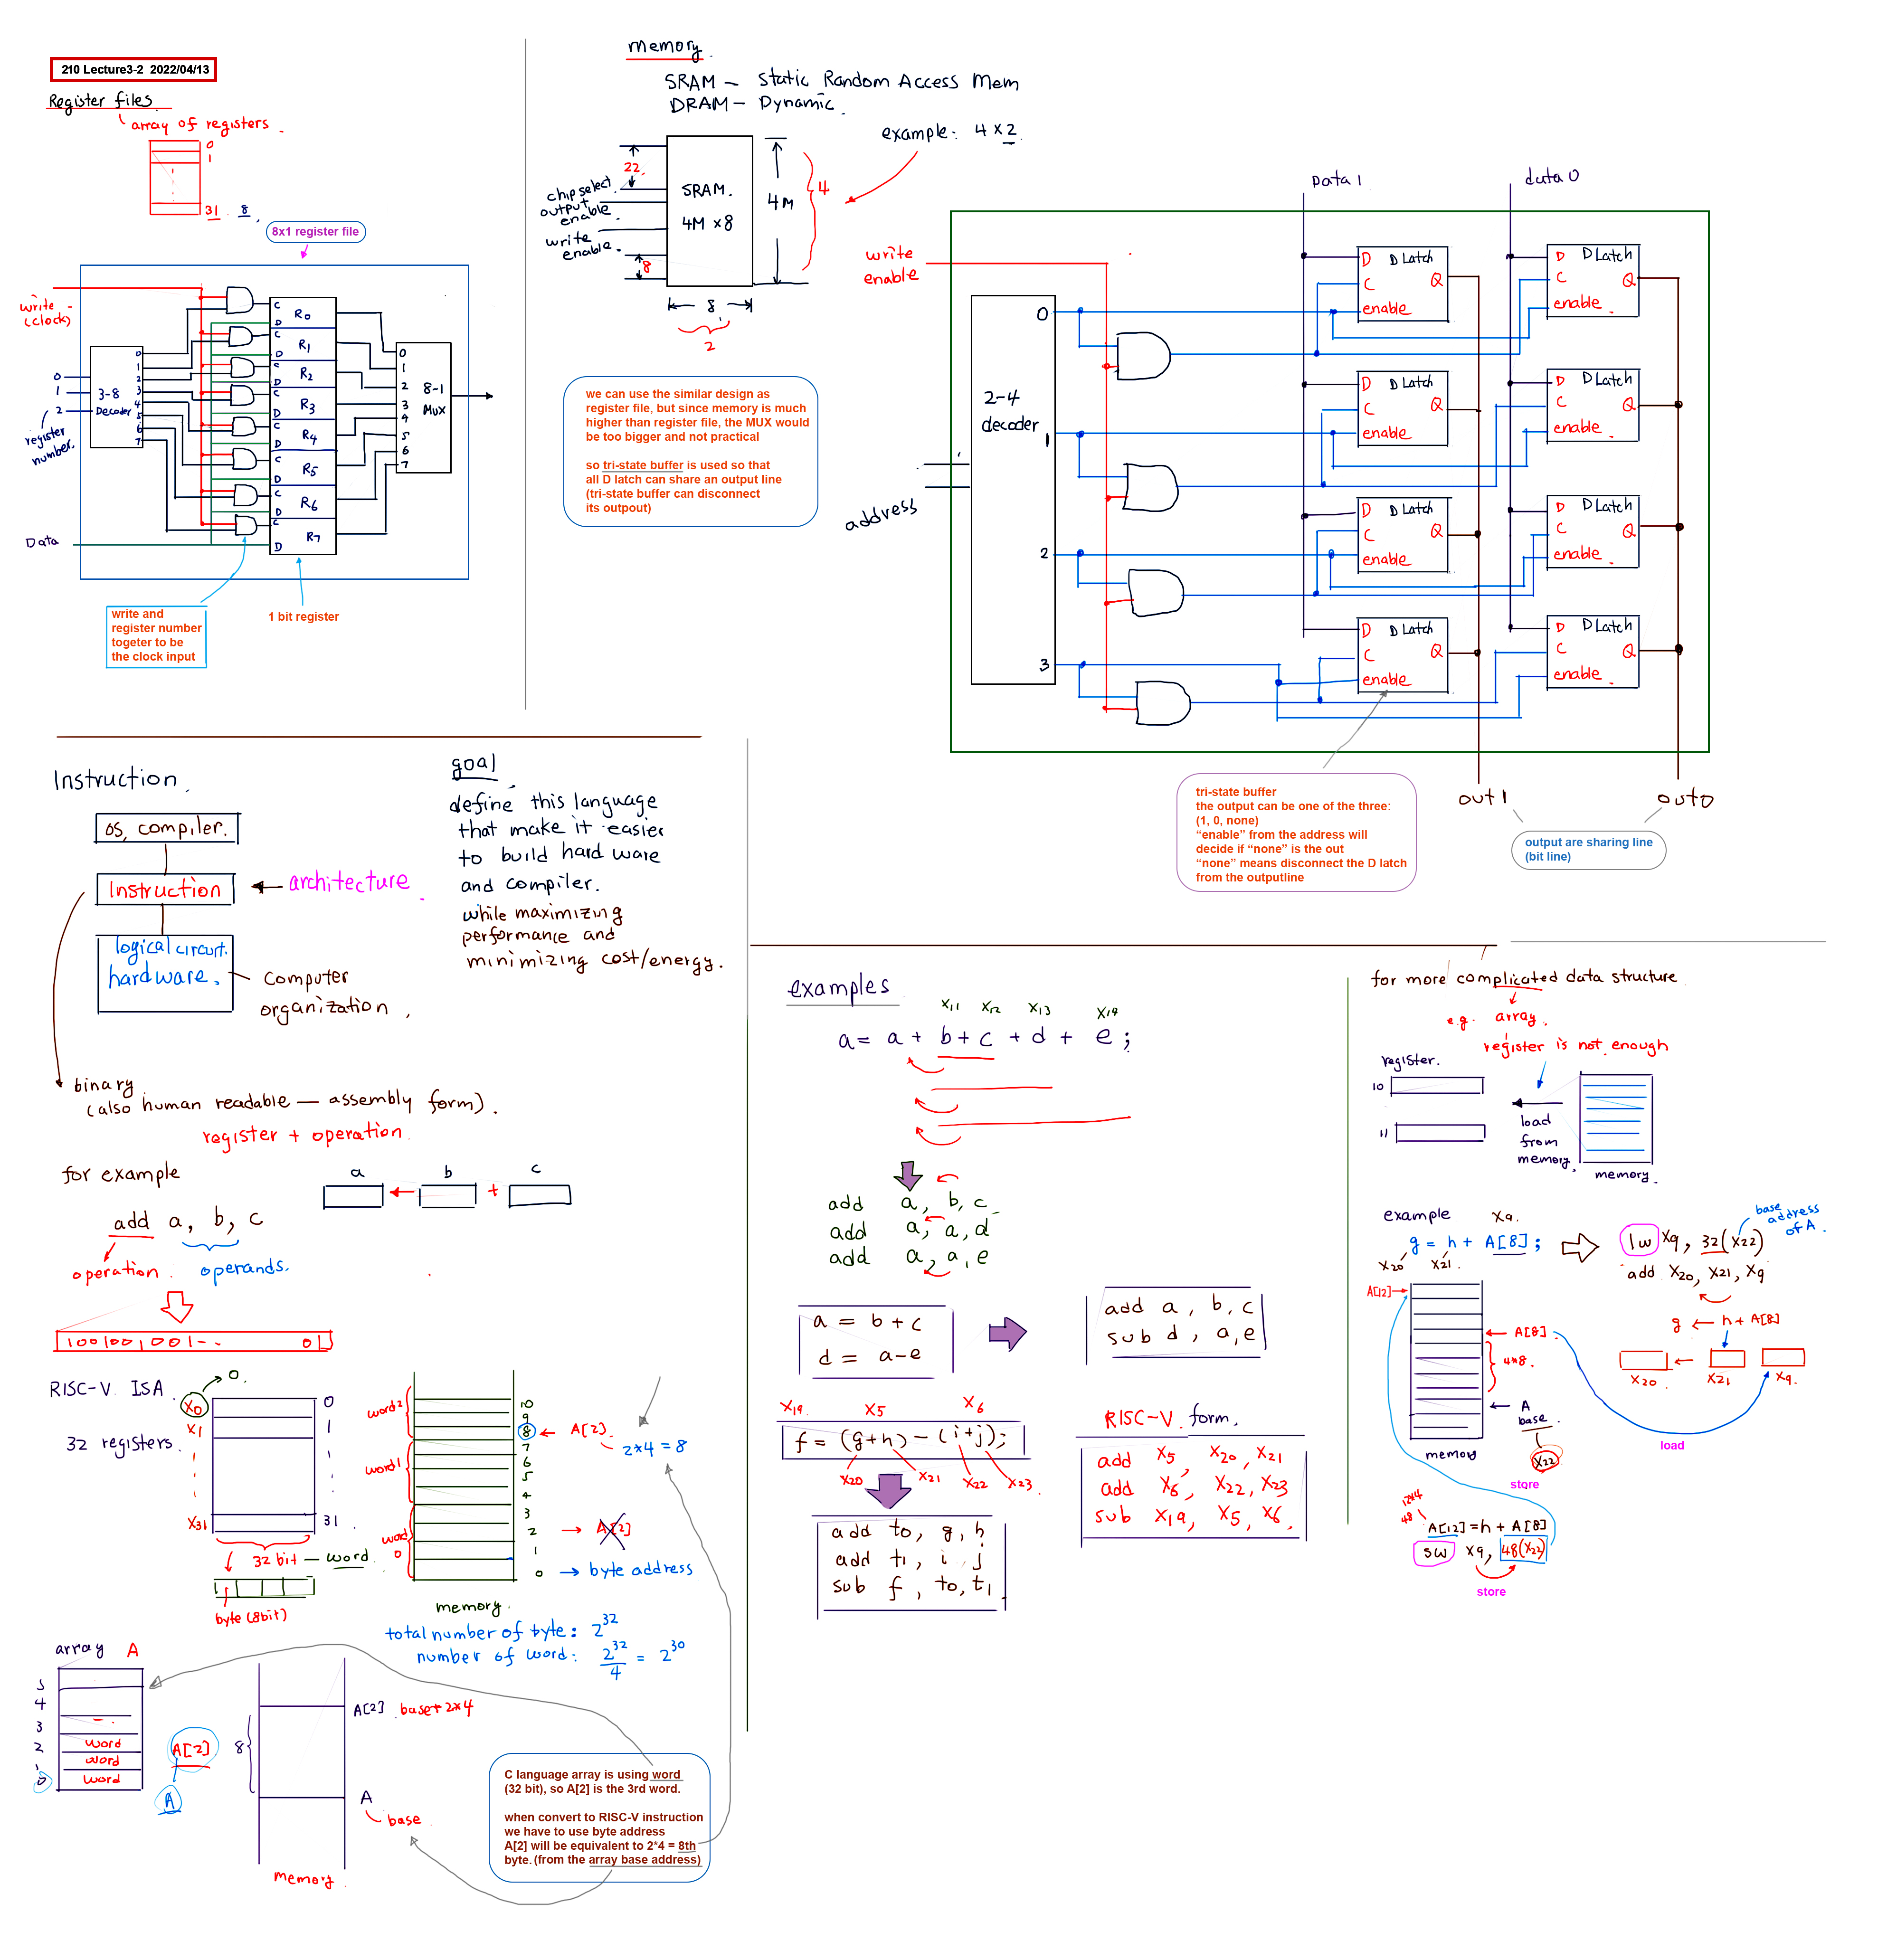 210 Lecture3-2 2022/04/13
Register files
array of registers
0
1
31 8
8x1 register file
write
(clock)
3-8
Decoder
0
1
2
register
number
0
1
2
3
4
5
6
7
C
D
R0
C
D
R1
C
D
R2
C
D
R3
C
D
R4
C
D
R5
C
D
R6
C
D
R7
0
1
2
3
4
5
6
7
8-1
MUX
Data
write and
register number
togeter to be
the clock input
1 bit register
memory
SRAM – Static Random Access Mem
DRAM – Dynamic
example: 4 x 2
22
chip select
output
enable
write
enable
8
SRAM.
4M x8
4M
4
8
2
we can use the similar design as
register file, but since memory is much
higher than register file, the MUX would
be too bigger and not practical
so tri-state buffer is used so that
all D latch can share an output line
(tri-state buffer can disconnect
its outpout)
Data 1
data 0
write
enable
2-4
decoder
address
0
1
2
3
D D Latch
C Q
enable
D D Latch
C Q
enable
D D Latch
C Q
enable
D D Latch
C Q
enable
D D Latch
C Q
enable
D D Latch
C Q
enable
D D Latch
C Q
enable
D D Latch
C Q
enable
out 1
out0
tri-state buffer
the output can be one of the three:
(1, 0, none)
“enable” from the address will
decide if “none” is the out
“none” means disconnect the D latch
from the outputline
output are sharing line
(bit line)
Instruction
OS, compiler.
Instruction
architecture
logical circuit.
hardware.
computer
organization
goal
define this language
that make it easier
to build hard ware
and compiler.
while maximizing
performance and
minimizing cost/energy.
binary
(also human readable — assembly form).
register + operation
for example
a b c
+
add a, b, c
operation
operands.
100100,001-- 01
RISC-V ISA
32 registers
X0
0.
X1
X31
0
1
31
32 bit — word
byte (8bit)
word2
word1
word
0
10
9
8
7
6
5
4
3
2
1
0
A[2]
2*4 = 8
A[2]
byte address
memory
total number of byte: 2^32
number of word: 2^32/4 = 2^30
array A
5
4
3
2
1
0
word
word
word
A[2]
A
A[2] base+2*4
8
A
base
memory
C language array is using word
(32 bit), so A[2] is the 3rd word.
when convert to RISC-V instruction
we have to use byte address
A[2] will be equivalent to 2*4 = 8th
byte. (from the array base address)
examples
X11 X12 X13 X14
a = a + b + c + d + e ;
add a, b, c
add a, a, d
add a, a, e
a = b + c
d = a - e
add a, b, c
sub d, a, e
X19 X5 X6
f = (g+h) - (i+j);
X20 X21 X22 X23
add t0, g, h
add t1, i, j
sub f, t0, t1
RISC-V form.
add X5, X20, X21
add X6, X22, X23
sub X19, X5, X6
for more complicated data structure
e.g. array
register is not enough
register.
10
11
load
from
memory
memory
example X9
g = h + A[8] ;
X20 X21
lw X9, 32(X22)
add X20, X21, X9
base
address
of A
g ← h + A[8]
X20 X21 X9
A[12]
A[8]
4*8
A
base
X22
memory
load
store
12*4
48
A[12] = h + A[8]
sw X9, 48(X22)
store